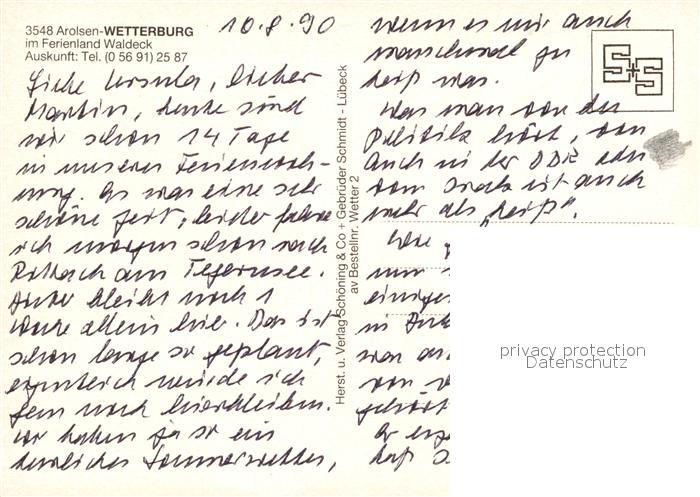 3548 Arolsen-WETTERBURG
im Ferienland Waldeck
Auskunft: Tel. (0 56 91) 25 87
10.8.90
Liebe Ursula, lieber
Martin, heute sind
wir schon 14 Tage
in unserer Ferienwoh-
nung. Es war eine sehr
schöne Zeit, leider fahre
ich morgen schon nach
Rottach am Tegernsee.
bleibt noch 1
Woche allein hier. Das ist
schon lange so geplant,
eigentlich würde ich
gern noch hierbleiben.
Wir haben ja so ein
herrliches Sommerwetter,
wenn es mir auch
manchmal zu
heiß war.
Was man von der
Politik hört, von
auch in der DDR oder
vom Irak ist auch
mehr als "heiß".
nun
einige
in
war
von
gehört
Er
daß
Herst. u. Verlag Schöning & Co + Gebrüder Schmidt - Lübeck
av Bestellnr. Wetter 2
S+S
privacy protection
Datenschutz